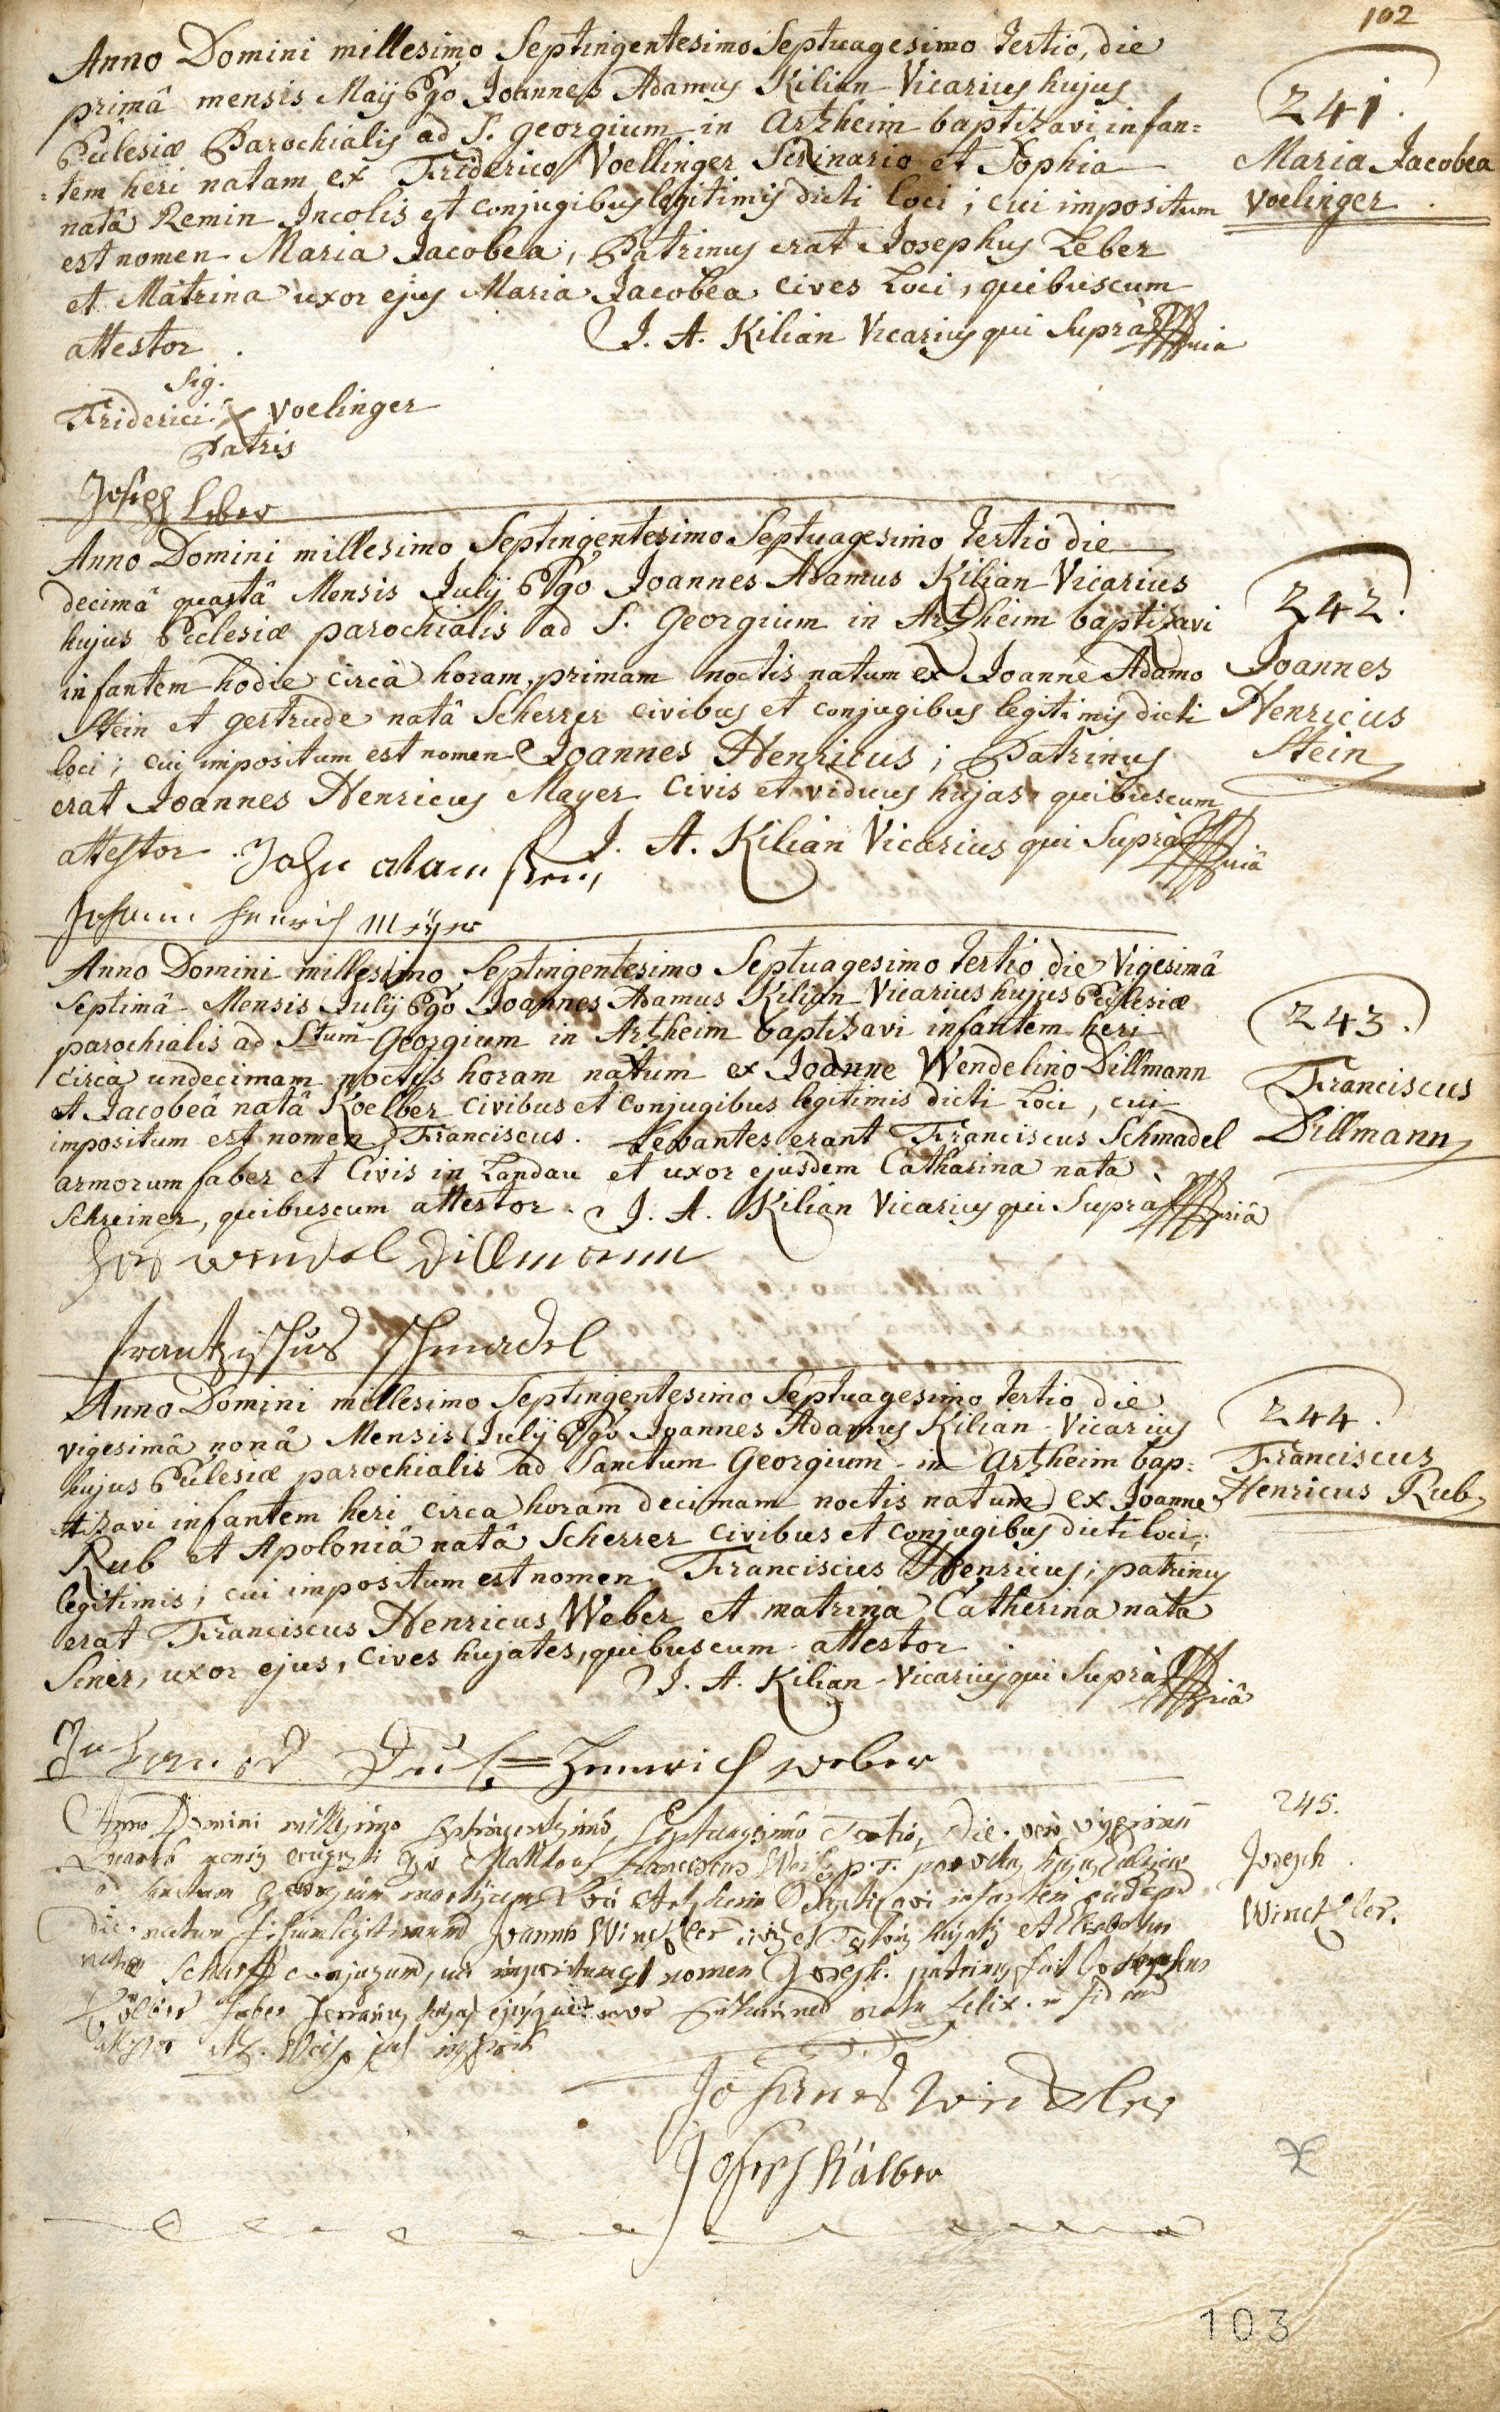 102
Anno Domini millesimo Septingentesimo Septuagesimo tertio, die
primâ mensis Maij Ego Joannes Adamus Kilian Vicarius hujus
Ecclesiæ Parochialis ad S. georgium in Artzheim baptizavi infan=
=tem heri natam ex Friderico Voellinger Scrinario et Sophia
natâ Remin Incolis et conjugibus legitimis dicti loci; cui impositum
est nomen Maria Jacobea, Patrinus erat Josephus Leber
et Matrina uxor ejus Maria Jacobea cives Loci, quibuscum
attestor.
J. A. Kilian Vicarius qui Suprà
241.
Maria Jacobea
Voelinger
Sig.
Friderici X Voelinger
Patris
Joseph Leber
Anno Domini millesimo Septingentesimo Septuagesimo tertio die
decimâ quartâ Mensis Julij Ego Joannes Adamus Kilian Vicarius
hujus Ecclesiæ parochialis ad S. Georgium in Artzheim baptizavi
infantem hodie circà horam primam noctis natum ex Joanne Adamo
Stein et gertrude natâ Scherrer civibus et conjugibus legitimis dicti
loci; cui impositum est nomen Joannes Henricus; Patrinus
erat Joannes Henricus Mayer Civis et viduus hujas quibuscum
attestor. J. A. Kilian Vicarius qui Suprà
242.
Joannes
Henricus
Stein
Johann Henrich Meyer
Anno Domini millesimo Septingentesimo Septuagesimo tertio die Vigesimâ
Septimâ Mensis Julij Ego Joannes Adamus Kilian Vicarius hujus Ecclesiæ
parochialis ad Stum Georgium in Artzheim baptizavi infantem heri
circà undecimam noctis horam natum ex Joanne Wendelino Dillmann
et Jacobeâ natâ Koelber civibus et conjugibus legitimis dicti Loci, cui
impositum est nomen Franciscus. Levantes erant Franciscus Schmadel
armorum faber et Civis in Landau et uxor ejusdem Catharina nata
Schreiner, quibuscum attestor. J. A. Kilian Vicarius qui Suprà
243.
Franciscus
Dillmann
wendel Dillmann
Frantziskus Schmadel
Anno Domini millesimo Septingentesimo Septuagesimo tertio die
vigesimâ nonâ Mensis Julij Ego Joannes Adamus Kilian Vicarius
hujus Ecclesiæ parochialis ad Sanctum Georgium in Artzheim bap=
tizavi infantem heri circa horam decimam noctis natum ex Joanne
Rub et Apoloniâ natâ Scherrer civibus et conjugibus dicti loci,
legitimis; cui impositum est nomen Franciscus Henricus; patrinus
erat Franciscus Henricus Weber et matrina Catherina nata
Siner, uxor ejus, cives hujates, quibuscum attestor.
J. A. Kilian Vicarius qui Suprà
244.
Franciscus
Henricus Rub
Henrich weber
Anno Domini millesimo Septingentesimo Septuagesimo Tertio, die
Franciscus
ad Sanctum Georgium Artzheim Baptizavi infantem eadem
die natum Joannis Winckler et
natæ Scharff conjugum, cui impositum est nomen Joseph. patrinus fuit Josephus
Kölber faber nata Felix. in fidem
245.
Joseph
Winckler.
Johanes Winckler
Joseph Kälber
103